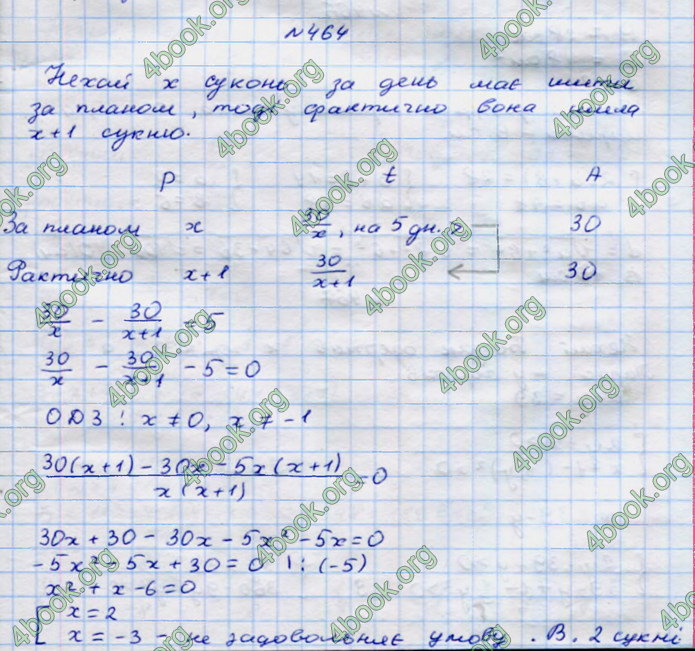 №464
Нехай x суконь за день має шити
за планом, тоді фактично вона шила
x+1 сукню.
P t A
За планом x 30/x, на 5 дн. > 30
Фактично x+1 30/(x+1) ← 30
30/x − 30/(x+1) = 5
30/x − 30/(x+1) − 5 = 0
ОДЗ: x ≠ 0, x ≠ −1
(30(x+1) − 30x − 5x(x+1))/(x(x+1)) = 0
30x + 30 − 30x − 5x² − 5x = 0
−5x² − 5x + 30 = 0 |: (−5)
x² + x − 6 = 0
[ x = 2
x = −3 − не задовольняє умову. В. 2 сукні
4book.org